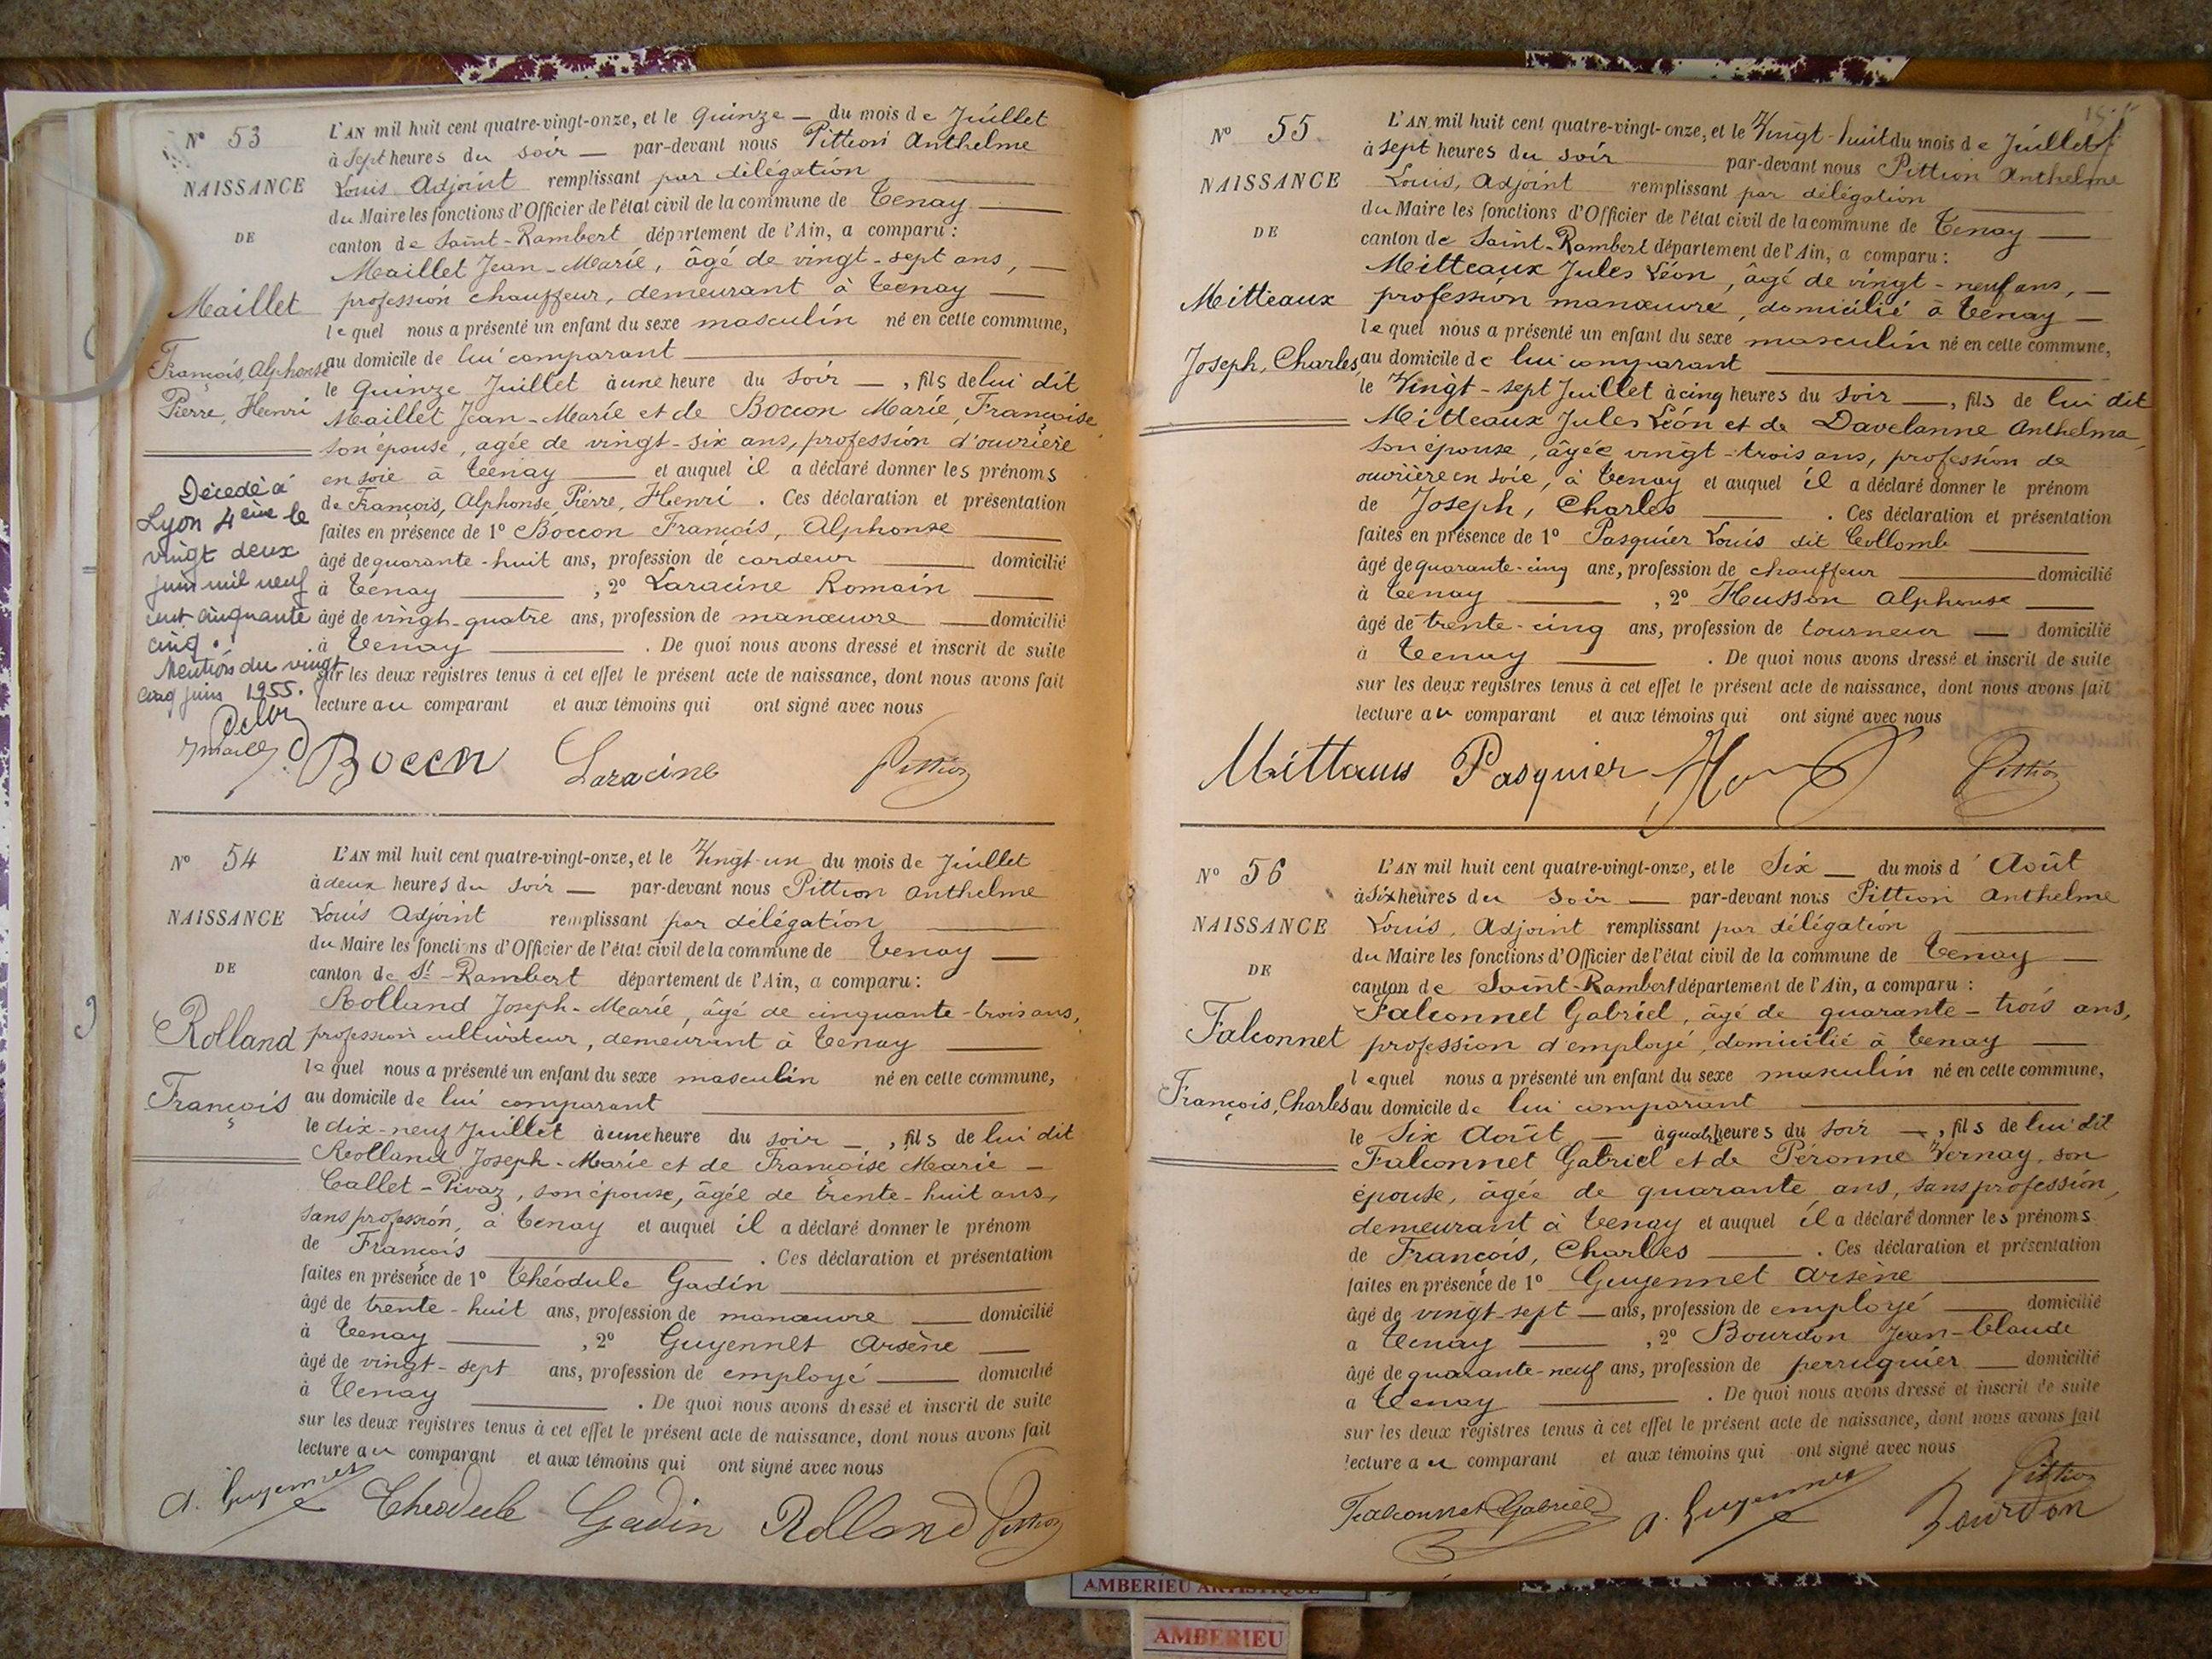 N° 53
NAISSANCE
DE
Maillet
François, Alphonse
Pierre, Henri
Décédé à
Lyon 4ème le
vingt deux
juin mil neuf
cent cinquante
cinq.
Mention du vingt
cinq juin 1955.
L'AN mil huit cent quatre-vingt-onze, et le Quinze — du mois de Juillet
à Sept heures du soir — par-devant nous Pittion Anthelme
Louis Adjoint remplissant par délégation
du Maire les fonctions d'Officier de l'état civil de la commune de Tenay
canton de Saint-Rambert département de l'Ain, a comparu :
Maillet Jean-Marie, âgé de vingt-sept ans,
profession chauffeur, demeurant à Tenay
lequel nous a présenté un enfant du sexe masculin né en cette commune,
au domicile de lui comparant
le Quinze Juillet à une heure du Soir —, fils de lui dit
Maillet Jean-Marie et de Boccon Marie, Françoise
son épouse, agée de vingt-six ans, profession d'ouvrière
en soie à Tenay et auquel il a déclaré donner les prénoms
de François, Alphonse, Pierre, Henri. Ces déclaration et présentation
faites en présence de 1° Boccon François, Alphonse
âgé de quarante-huit ans, profession de cardeur domicilié
à Tenay, 2° Laracine Romain
âgé de vingt-quatre ans, profession de manœuvre domicilié
à Tenay. De quoi nous avons dressé et inscrit de suite
sur les deux registres tenus à cet effet le présent acte de naissance, dont nous avons fait
lecture au comparant et aux témoins qui ont signé avec nous
Boccn Laracine Pittion
N° 54
NAISSANCE
DE
Rolland
François
L'AN mil huit cent quatre-vingt-onze, et le Vingt-un du mois de Juillet
à deux heures du soir — par-devant nous Pittion Anthelme
Louis Adjoint remplissant par délégation
du Maire les fonctions d'Officier de l'état civil de la commune de Tenay
canton de St-Rambert département de l'Ain, a comparu :
Rolland Joseph-Marie, âgé de cinquante-trois ans,
profession cultivateur, demeurant à Tenay
lequel nous a présenté un enfant du sexe masculin né en cette commune,
au domicile de lui comparant
le dix-neuf Juillet à une heure du soir —, fils de lui dit
Rolland Joseph-Marie et de Françoise Marie —
Callet-Pivaz, son épouse, âgée de trente-huit ans,
sans profession, à Tenay et auquel il a déclaré donner le prénom
de François. Ces déclaration et présentation
faites en présence de 1° Théodule Gadin
âgé de trente-huit ans, profession de manœuvre domicilié
à Tenay, 2° Guyennet Arsène
âgé de vingt-sept ans, profession de employé domicilié
à Tenay. De quoi nous avons dressé et inscrit de suite
sur les deux registres tenus à cet effet le présent acte de naissance, dont nous avons fait
lecture au comparant et aux témoins qui ont signé avec nous
A. Guyennet Théodule Gadin Rolland Pittion
N° 55
NAISSANCE
DE
Mitteaux
Joseph, Charles
L'AN mil huit cent quatre-vingt-onze, et le Vingt-huit du mois de Juillet
à sept heures du soir par-devant nous Pittion Anthelme
Louis, Adjoint remplissant par délégation
du Maire les fonctions d'Officier de l'état civil de la commune de Tenay
canton de Saint-Rambert département de l'Ain, a comparu :
Mitteaux Jules Léon, âgé de vingt-neuf ans,
profession manœuvre, domicilié à Tenay
lequel nous a présenté un enfant du sexe masculin né en cette commune,
au domicile de lui comparant
le Vingt-sept Juillet à cinq heures du soir —, fils de lui dit
Mitteaux Jules Léon et de Davelanne Anthelma,
son épouse, âgée vingt-trois ans, profession de
ouvrière en soie, à Tenay et auquel il a déclaré donner le prénom
de Joseph, Charles. Ces déclaration et présentation
faites en présence de 1° Pasquier Louis dit Collomb
âgé de quarante-cinq ans, profession de chauffeur domicilié
à Tenay, 2° Husson Alphonse
âgé de trente-cinq ans, profession de tourneur — domicilié
à Tenay. De quoi nous avons dressé et inscrit de suite
sur les deux registres tenus à cet effet le présent acte de naissance, dont nous avons fait
lecture au comparant et aux témoins qui ont signé avec nous
Mittaux Pasquier Pittion
N° 56
NAISSANCE
DE
Falconnet
François, Charles
L'AN mil huit cent quatre-vingt-onze, et le Six — du mois d'Août
à Six heures du soir — par-devant nous Pittion Anthelme
Louis, Adjoint remplissant par délégation
du Maire les fonctions d'Officier de l'état civil de la commune de Tenay
canton de Saint-Rambert département de l'Ain, a comparu :
Falconnet Gabriel, âgé de quarante-trois ans,
profession d'employé, domicilié à Tenay
lequel nous a présenté un enfant du sexe masculin né en cette commune,
au domicile de lui comparant
le Six Août — à quatre heures du soir —, fils de lui dit
Falconnet Gabriel et de Péronne Vernay, son
épouse, âgée de quarante ans, sans profession,
demeurant à Tenay et auquel il a déclaré donner les prénoms
de François, Charles. Ces déclaration et présentation
faites en présence de 1° Guyennet Arsène
âgé de vingt-sept — ans, profession de employé domicilié
a Tenay, 2° Bourdon Jean-Claude
âgé de quarante-neuf ans, profession de perruquier domicilié
a Tenay. De quoi nous avons dressé et inscrit de suite
sur les deux registres tenus à cet effet le présent acte de naissance, dont nous avons fait
lecture au comparant et aux témoins qui ont signé avec nous
Falconnet Gabriel A. Guyennet Bourdon Pittion
AMBERIEU ARTISTIQUE
AMBERIEU